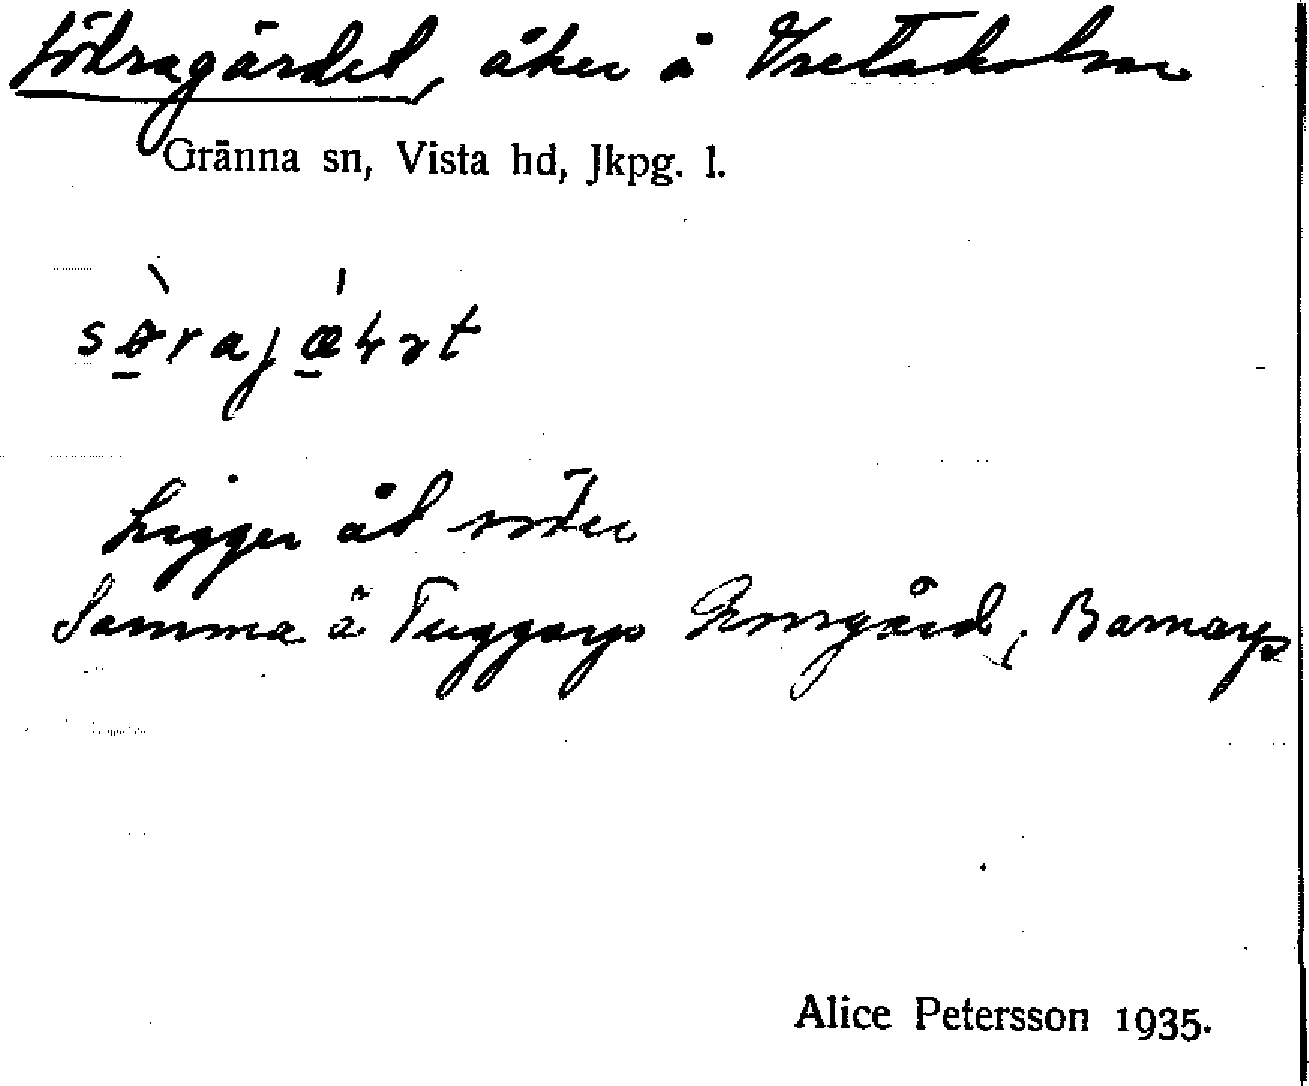 Södragärdet, åker å Vretaholm
Gränna sn, Vista hd, Jkpg. l.
Ligger åt söder
Samma å Tuggarp Norrgård, Barnarp
Alice Petersson 1935.